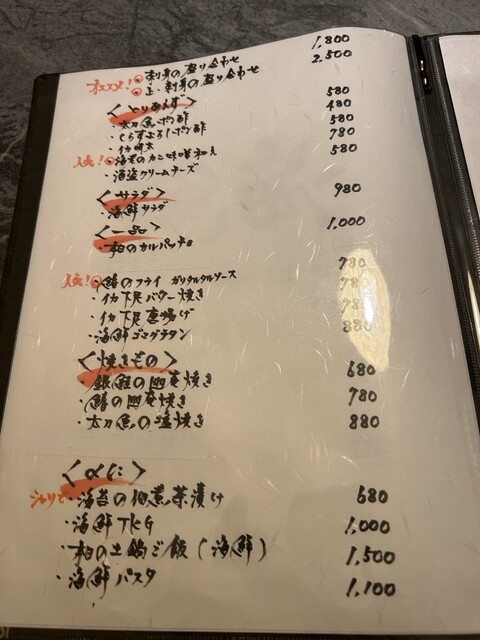 オススメ!○刺身の盛り合わせ 1,800
○上・刺身の盛り合わせ 2,500
〈とりあえず〉
・太刀魚ポン酢 580
・くらげおろしポン酢 480
・イカ明太 580
人気!○海老のカニ味噌和え 780
・海盗クリームチーズ 580
〈サラダ〉
・海鮮サラダ 980
〈一品〉
・柏のカルパッチョ 1,000
人気!○鰆のフライ ガリタルタルソース 780
・イカ下足バター焼き 780
・イカ下足唐揚げ 780
・海鮮ゴマグラタン 880
〈焼きもの〉
・銀鮭の幽庵焼き 680
・鰆の幽庵焼き 780
・太刀魚の塩焼き 880
〈〆に〉
・海苔の佃煮茶漬け 680
・海鮮TKG 1,000
・柏の土鍋ご飯(海鮮) 1,500
・海鮮パスタ 1,100